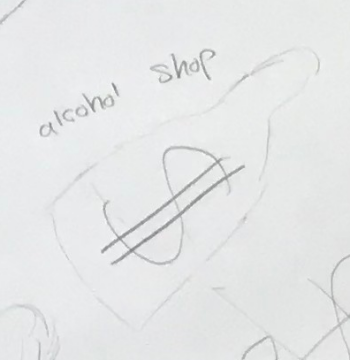 alcohol shop
$